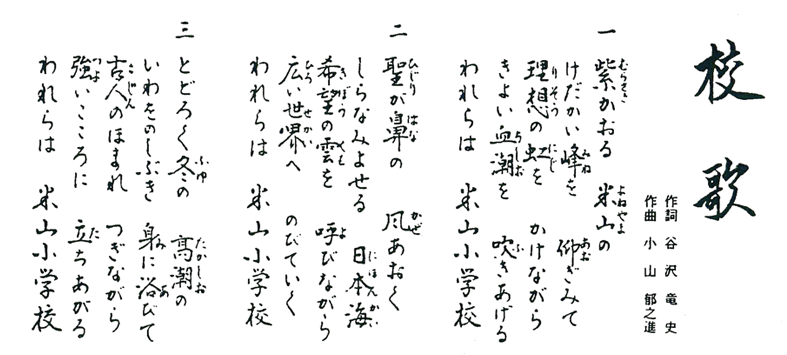 校歌
作詞 谷沢竜史
作曲 小山郁之進
一 紫かおる 米山の
けだかい峰を 仰ぎみて
理想の虹を かけながら
きよい血潮を 吹きあげる
われらは 米山小学校
二 聖が鼻の 風あおく
しらなみよせる 日本海
希望の雲を 呼びながら
広い世界へ のびていく
われらは 米山小学校
三 とどろく冬の 高潮の
いわをのしぶき 身に浴びて
古人のほまれ つぎながら
強いこころに 立ちあがる
われらは 米山小学校